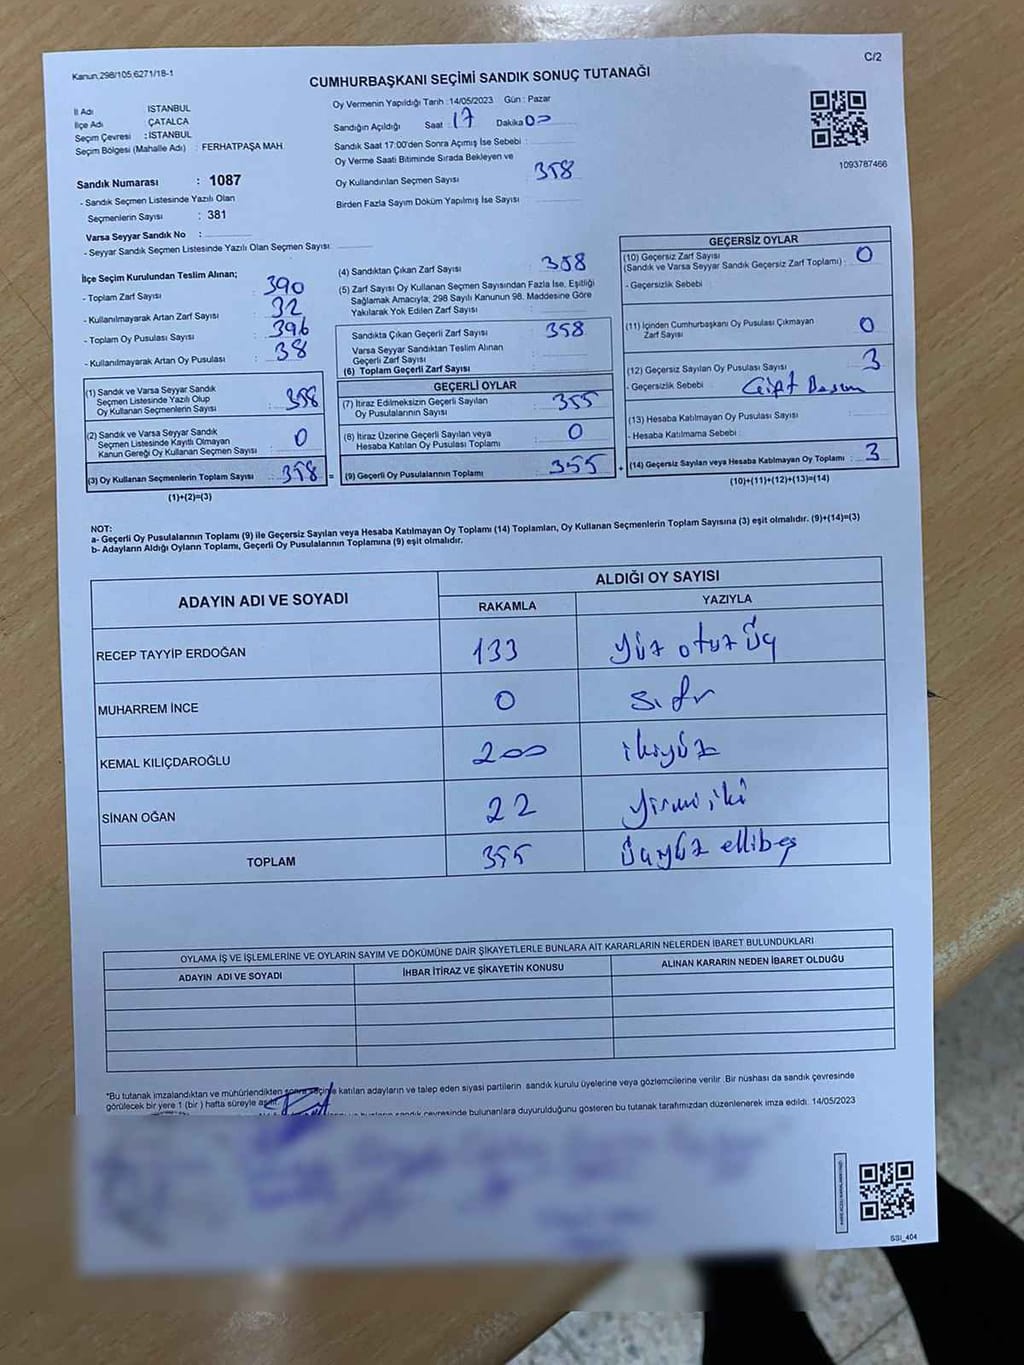 Kanun:298/105;6271/18-1
C/2
CUMHURBAŞKANI SEÇİMİ SANDIK SONUÇ TUTANAĞI
İl Adı İSTANBUL
İlçe Adı ÇATALCA
Seçim Çevresi : İSTANBUL
Seçim Bölgesi (Mahalle Adı) : FERHATPAŞA MAH.
Sandık Numarası : 1087
- Sandık Seçmen Listesinde Yazılı Olan
Seçmenlerin Sayısı : 381
Varsa Seyyar Sandık No :
- Seyyar Sandık Seçmen Listesinde Yazılı Olan Seçmen Sayısı:
Oy Vermenin Yapıldığı Tarih :14/05/2023 Gün : Pazar
Sandığın Açıldığı Saat : 17 Dakika 00
Sandık Saat 17:00'den Sonra Açımış İse Sebebi :
Oy Verme Saati Bitiminde Sırada Bekleyen ve
Oy Kullandırılan Seçmen Sayısı 358
Birden Fazla Sayım Döküm Yapılmış İse Sayısı
1093787466
İlçe Seçim Kurulundan Teslim Alınan;
- Toplam Zarf Sayısı : 390
- Kullanılmayarak Artan Zarf Sayısı : 32
- Toplam Oy Pusulası Sayısı : 396
- Kullanılmayarak Artan Oy Pusulası : 38
(1) Sandık ve Varsa Seyyar Sandık
Seçmen Listesinde Yazılı Olup
Oy Kullanan Seçmenlerin Sayısı : 358
(2) Sandık ve Varsa Seyyar Sandık
Seçmen Listesinde Kayıtlı Olmayan
Kanun Gereği Oy Kullanan Seçmen Sayısı : 0
(3) Oy Kullanan Seçmenlerin Toplam Sayısı : 358 =
(1)+(2)=(3)
(4) Sandıktan Çıkan Zarf Sayısı : 358
(5) Zarf Sayısı Oy Kullanan Seçmen Sayısından Fazla İse, Eşitliği
Sağlamak Amacıyla; 298 Sayılı Kanunun 98. Maddesine Göre
Yakılarak Yok Edilen Zarf Sayısı :
Sandıkta Çıkan Geçerli Zarf Sayısı : 358
Varsa Seyyar Sandıktan Teslim Alınan
Geçerli Zarf Sayısı :
(6) Toplam Geçerli Zarf Sayısı :
GEÇERLİ OYLAR
(7) İtiraz Edilmeksizin Geçerli Sayılan
Oy Pusulalarının Sayısı : 355
(8) İtiraz Üzerine Geçerli Sayılan veya
Hesaba Katılan Oy Pusulası Toplamı : 0
(9) Geçerli Oy Pusulalarının Toplamı : 355 +
GEÇERSİZ OYLAR
(10) Geçersiz Zarf Sayısı
(Sandık ve Varsa Seyyar Sandık Geçersiz Zarf Toplamı) : 0
- Geçersizlik Sebebi :
(11) İçinden Cumhurbaşkanı Oy Pusulası Çıkmayan
Zarf Sayısı : 0
(12) Geçersiz Sayılan Oy Pusulası Sayısı : 3
- Geçersizlik Sebebi : Çift Basım
(13) Hesaba Katılmayan Oy Pusulası Sayısı :
- Hesaba Katılmama Sebebi :
(14) Geçersiz Sayılan veya Hesaba Katılmayan Oy Toplamı : 3
(10)+(11)+(12)+(13)=(14)
NOT:
a- Geçerli Oy Pusulalarının Toplamı (9) ile Geçersiz Sayılan veya Hesaba Katılmayan Oy Toplamı (14) Toplamları, Oy Kullanan Seçmenlerin Toplam Sayısına (3) eşit olmalıdır. (9)+(14)=(3)
b- Adayların Aldığı Oyların Toplamı, Geçerli Oy Pusulalarının Toplamına (9) eşit olmalıdır.
ADAYIN ADI VE SOYADI
ALDIĞI OY SAYISI
RAKAMLA YAZIYLA
RECEP TAYYİP ERDOĞAN 133 yüz otuz üç
MUHARREM İNCE 0 sıfır
KEMAL KILIÇDAROĞLU 200 ikiyüz
SİNAN OĞAN 22 yirmi iki
TOPLAM 355 üçyüz ellibeş
OYLAMA İŞ VE İŞLEMLERİNE VE OYLARIN SAYIM VE DÖKÜMÜNE DAİR ŞİKAYETLERLE BUNLARA AİT KARARLARIN NELERDEN İBARET BULUNDUKLARI
ADAYIN ADI VE SOYADI İHBAR İTİRAZ VE ŞİKAYETİN KONUSU ALINAN KARARIN NEDEN İBARET OLDUĞU
*Bu tutanak imzalandıktan ve mühürlendikten sonra seçime katılan adayların ve talep eden siyasi partilerin sandık kurulu üyelerine veya gözlemcilerine verilir. Bir nüshası da sandık çevresinde
görülecek bir yere 1 (bir) hafta süreyle asılır.
sandık çevresinde bulunanlara duyurulduğunu gösteren bu tutanak tarafımızdan düzenlenerek imza edildi. 14/05/2023
SSI_404